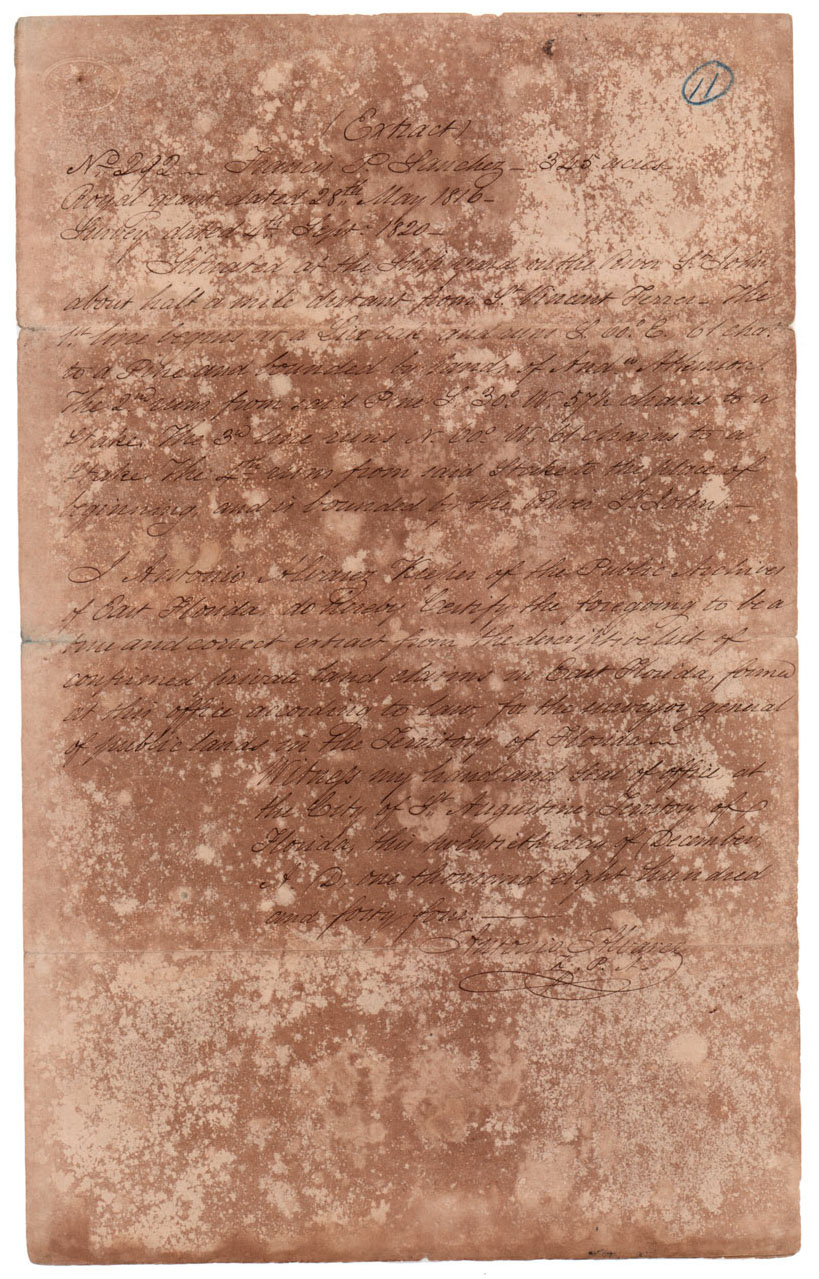 11
(Extract)
No. 292 - Francis P. Sanchez - 345 acres
Royal grant dated 28th May 1816 -
Survey dated 4th Septr 1820 -
Situated at the Ship yard on the River St John
about half a mile distant from St Vincent Ferrer. The
1st line begins at a Live oak and runs S. 60° E. 61 chas
to a Pine and bounded by lands of Andw Atkinson.
The 2nd runs from said Pine S. 30° W. 57½ chains to a
Stake. The 3d line runs N. 60° W. 61 chains to a
Stake. The 4th runs from said Stake to the place of
beginning, and is bounded by the River St John. -
I Antonio Alvarez Keeper of the Public Archives
of East Florida, do hereby Certify the foregoing to be a
true and correct extract from the descriptive list of
confirmed private land claims in East Florida, formed
at this office according to law for the surveyor general
of public lands in the Territory of Florida -
Witness my hand and seal of office, at
the City of St Augustine, Territory of
Florida, this twentieth day of December,
A. D. one thousand eight hundred
and forty four. -
Antonio Alvarez
K. P. A.